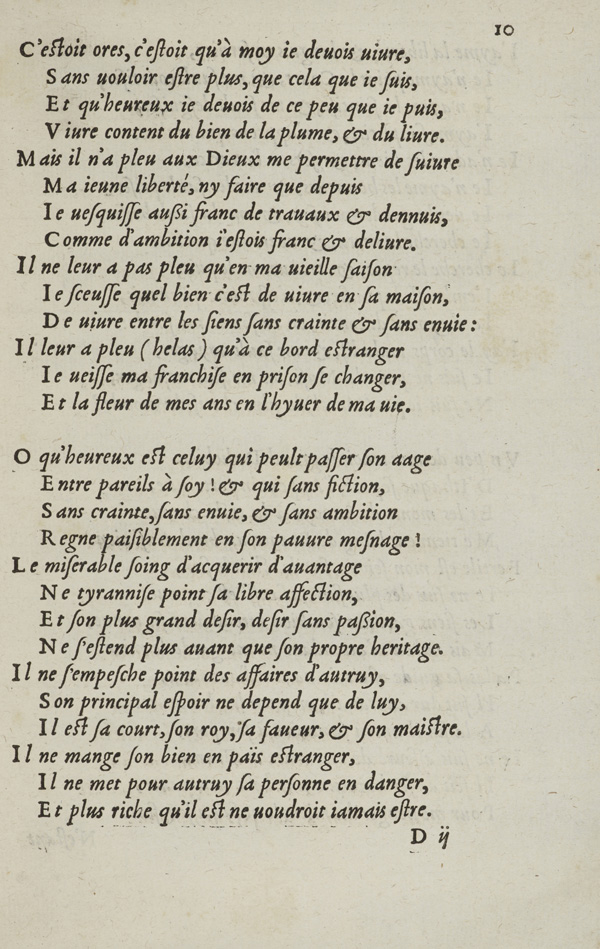 10
C'eſtoit ores, c'eſtoit qu'à moy ie deuois uiure,
Sans uouloir eſtre plus, que cela que ie ſuis,
Et qu'heureux ie deuois de ce peu que ie puis,
Viure content du bien de la plume, & du liure.
Mais il n'a pleu aux Dieux me permettre de ſuiure
Ma ieune liberté, ny faire que depuis
Ie ueſquiſſe außi franc de trauaux & dennuis,
Comme d'ambition i'eſtois franc & deliure.
Il ne leur a pas pleu qu'en ma uieille ſaiſon
Ie ſceuſſe quel bien c'eſt de uiure en ſa maiſon,
De uiure entre les ſiens ſans crainte & ſans enuie:
Il leur a pleu (helas) qu'à ce bord eſtranger
Ie ueiſſe ma franchiſe en priſon ſe changer,
Et la fleur de mes ans en l'hyuer de ma uie.
O qu'heureux eſt celuy qui peult paſſer ſon aage
Entre pareils à ſoy! & qui ſans fiction,
Sans crainte, ſans enuie, & ſans ambition
Regne paiſiblement en ſon pauure meſnage!
Le miſerable ſoing d'acquerir d'auantage
Ne tyranniſe point ſa libre affection,
Et ſon plus grand deſir, deſir ſans paßion,
Ne ſ'eſtend plus auant que ſon propre heritage.
Il ne ſ'empeſche point des affaires d'autruy,
Son principal eſpoir ne depend que de luy,
Il eſt ſa court, ſon roy, ſa faueur, & ſon maiſtre.
Il ne mange ſon bien en païs eſtranger,
Il ne met pour autruy ſa perſonne en danger,
Et plus riche qu'il eſt ne uoudroit iamais eſtre.
D ij